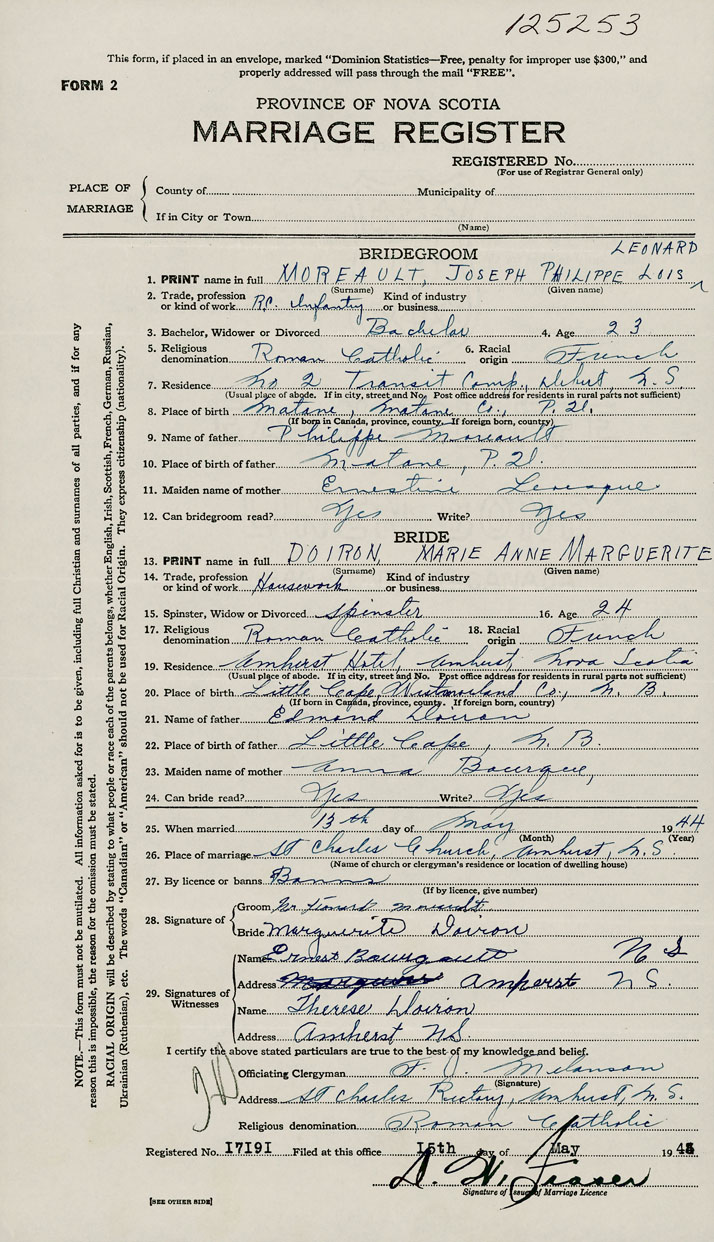 125253
This form, if placed in an envelope, marked "Dominion Statistics—Free, penalty for improper use $300," and
properly addressed will pass through the mail "FREE".
FORM 2
PROVINCE OF NOVA SCOTIA
MARRIAGE REGISTER
REGISTERED No.
(For use of Registrar General only)
PLACE OF MARRIAGE
County of Municipality of
If in City or Town
(Name)
BRIDEGROOM LEONARD
1. PRINT name in full MOREAULT, JOSEPH PHILIPPE LOIS
(Surname) (Given name)
2. Trade, profession or kind of work Infantry Kind of industry or business
3. Bachelor, Widower or Divorced Bachelor 4. Age 23
5. Religious denomination Roman Catholic 6. Racial origin French
7. Residence No 2 Transit Comp., Debert, N.S.
(Usual place of abode. If in city, street and No. Post office address for residents in rural parts not sufficient)
8. Place of birth Matane, Matane Co., P.Q.
(If born in Canada, province, county. If foreign born, country)
9. Name of father Philippe Moreault
10. Place of birth of father Matane, P.Q.
11. Maiden name of mother Ernestine Levesque
12. Can bridegroom read? Yes Write? Yes
BRIDE
13. PRINT name in full DOIRON, MARIE ANNE MARGUERITE
(Surname) (Given name)
14. Trade, profession or kind of work Housework Kind of industry or business
15. Spinster, Widow or Divorced Spinster 16. Age 24
17. Religious denomination Roman Catholic 18. Racial origin French
19. Residence Amherst Hotel, Amherst, Nova Scotia
(Usual place of abode. If in city, street and No. Post office address for residents in rural parts not sufficient)
20. Place of birth Little Cape, Westmorland Co., N.B.
(If born in Canada, province, county. If foreign born, country)
21. Name of father Edmond Doiron
22. Place of birth of father Little Cape, N.B.
23. Maiden name of mother Anna Bourque,
24. Can bride read? Yes Write? Yes
25. When married 13th day of May 1944
(Month) (Year)
26. Place of marriage St Charles Church, Amherst, N.S.
(Name of church or clergyman's residence or location of dwelling house)
27. By licence or banns Banns
(If by licence, give number)
28. Signature of
Groom Mr Leonard Moreault
Bride Marguerite Doiron
29. Signatures of Witnesses
Name Ernest Bourgault N S
Address Amperst N S.
Name Therese Doiron
Address Amherst NS
I certify the above stated particulars are true to the best of my knowledge and belief.
Officiating Clergyman F. J. Melanson
(Signature)
Address St Charles Rectory, Amherst, N.S.
Religious denomination Roman Catholic
Registered No. 17191 Filed at this office 15th day of May 194
D. W. Fraser
Signature of Issuer of Marriage Licence
[SEE OTHER SIDE]
NOTE.—This form must not be mutilated. All information asked for is to be given, including full Christian and surnames of all parties, and if for any
reason this is impossible, the reason for the omission must be stated.
RACIAL ORIGIN will be described by stating to what people or race each of the parents belongs, whether English, Irish, Scottish, French, German, Russian,
Ukrainian (Ruthenian), etc. The words "Canadian" or "American" should not be used for Racial Origin. They express citizenship (nationality).